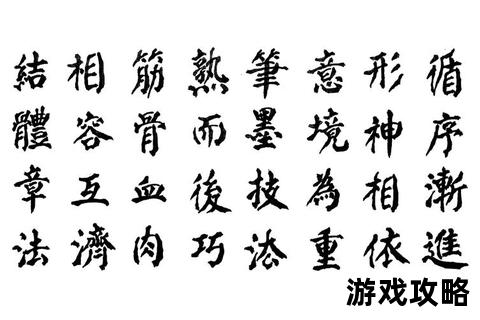 循序漸進
形神相依
意境為重
筆墨技法
熟而後巧
筋骨血肉
相容互濟
結體章法
游戏攻略